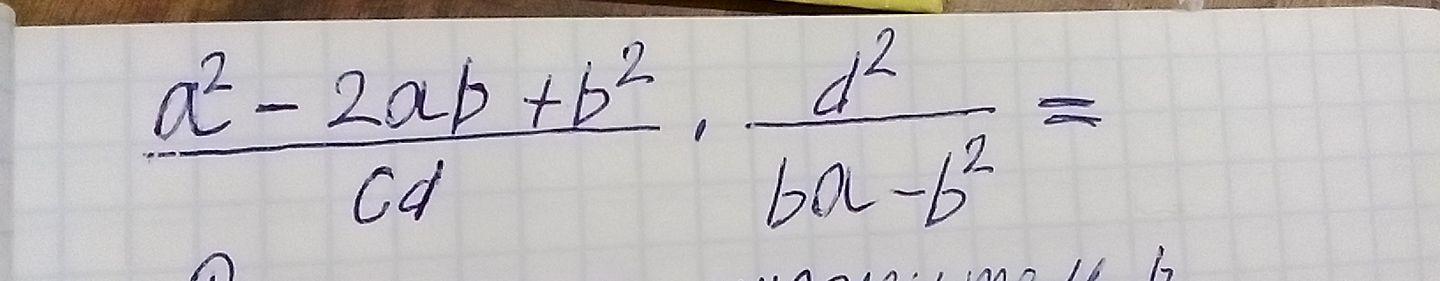 \frac{a^2 - 2ab + b^2}{cd} \cdot \frac{d^2}{ba - b^2} =